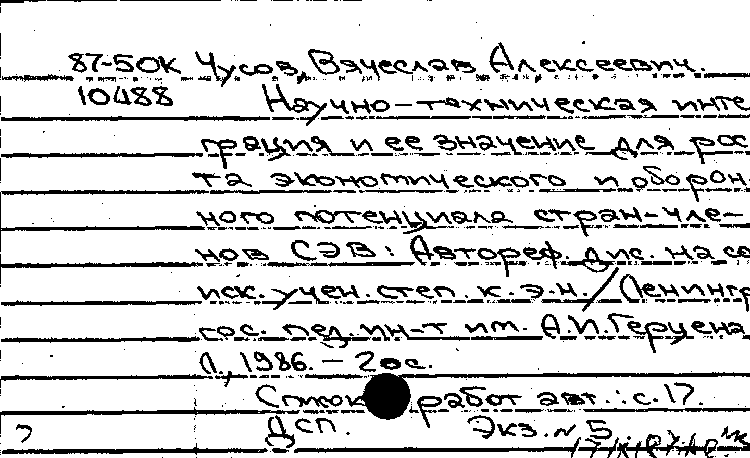 87-50К Чусов, Вячеслав Алексеевич.
10488 Научно-техническая инте
грация и ее значение для рос
та экономического и оборон
ного потенциала стран-чле-
нов СЭВ: Автореф. дис. на со
иск. учен. степ. к.э.н. / Ленингр
гос. пед. ин-т им. А.И.Герцена
Л., 1986. - 20с.
Список работ авт.: с.17.
ДСП. Экз. № 5